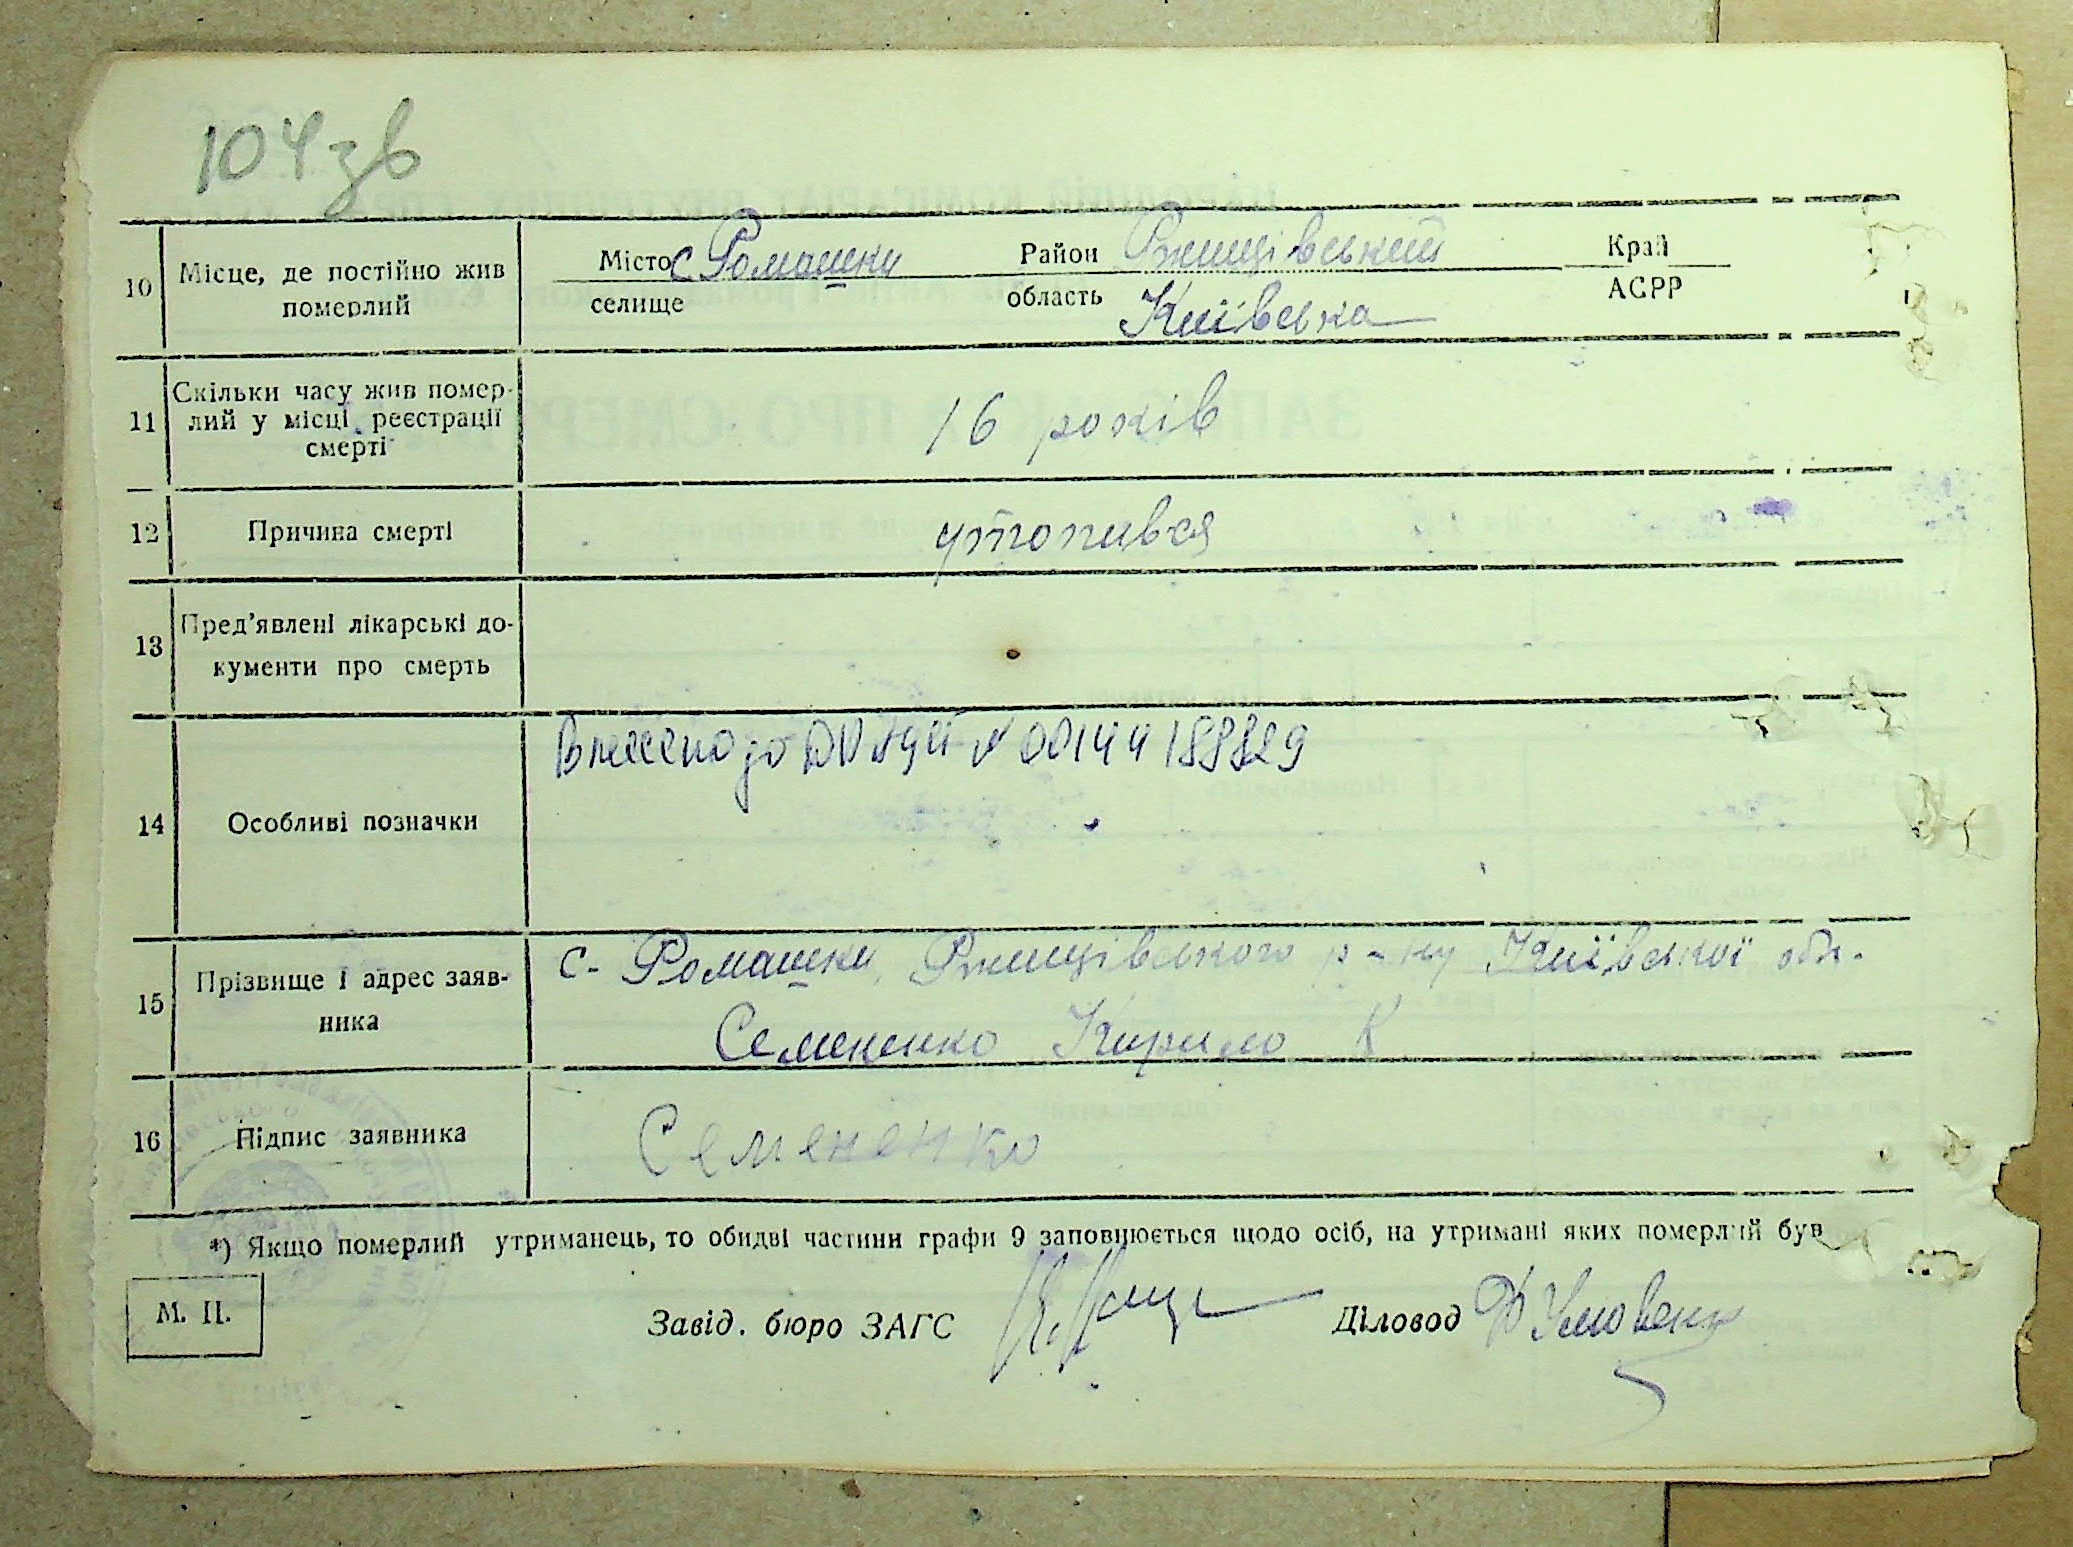 104 зв
10 Місце, де постійно жив померлий
Місто с Ромашки Район Ржищівський Край
селище область Київська АСРР
11 Скільки часу жив помер-
лий у місці реєстрації
смерті
16 років
12 Причина смерті утопився
13 Пред'явлені лікарські до-
кументи про смерть
14 Особливі позначки
Внесено до № 00144188829
15 Прізвище і адрес заяв-
ника
с- Ромашки, Ржищівського р-ну Київської обл.
Семененко Кирило К
16 Підпис заявника Семененко
*) Якщо померлий утриманець, то обидві частини графи 9 заповнюється щодо осіб, на утримані яких померлий був
М. П. Завід. бюро ЗАГС Діловод